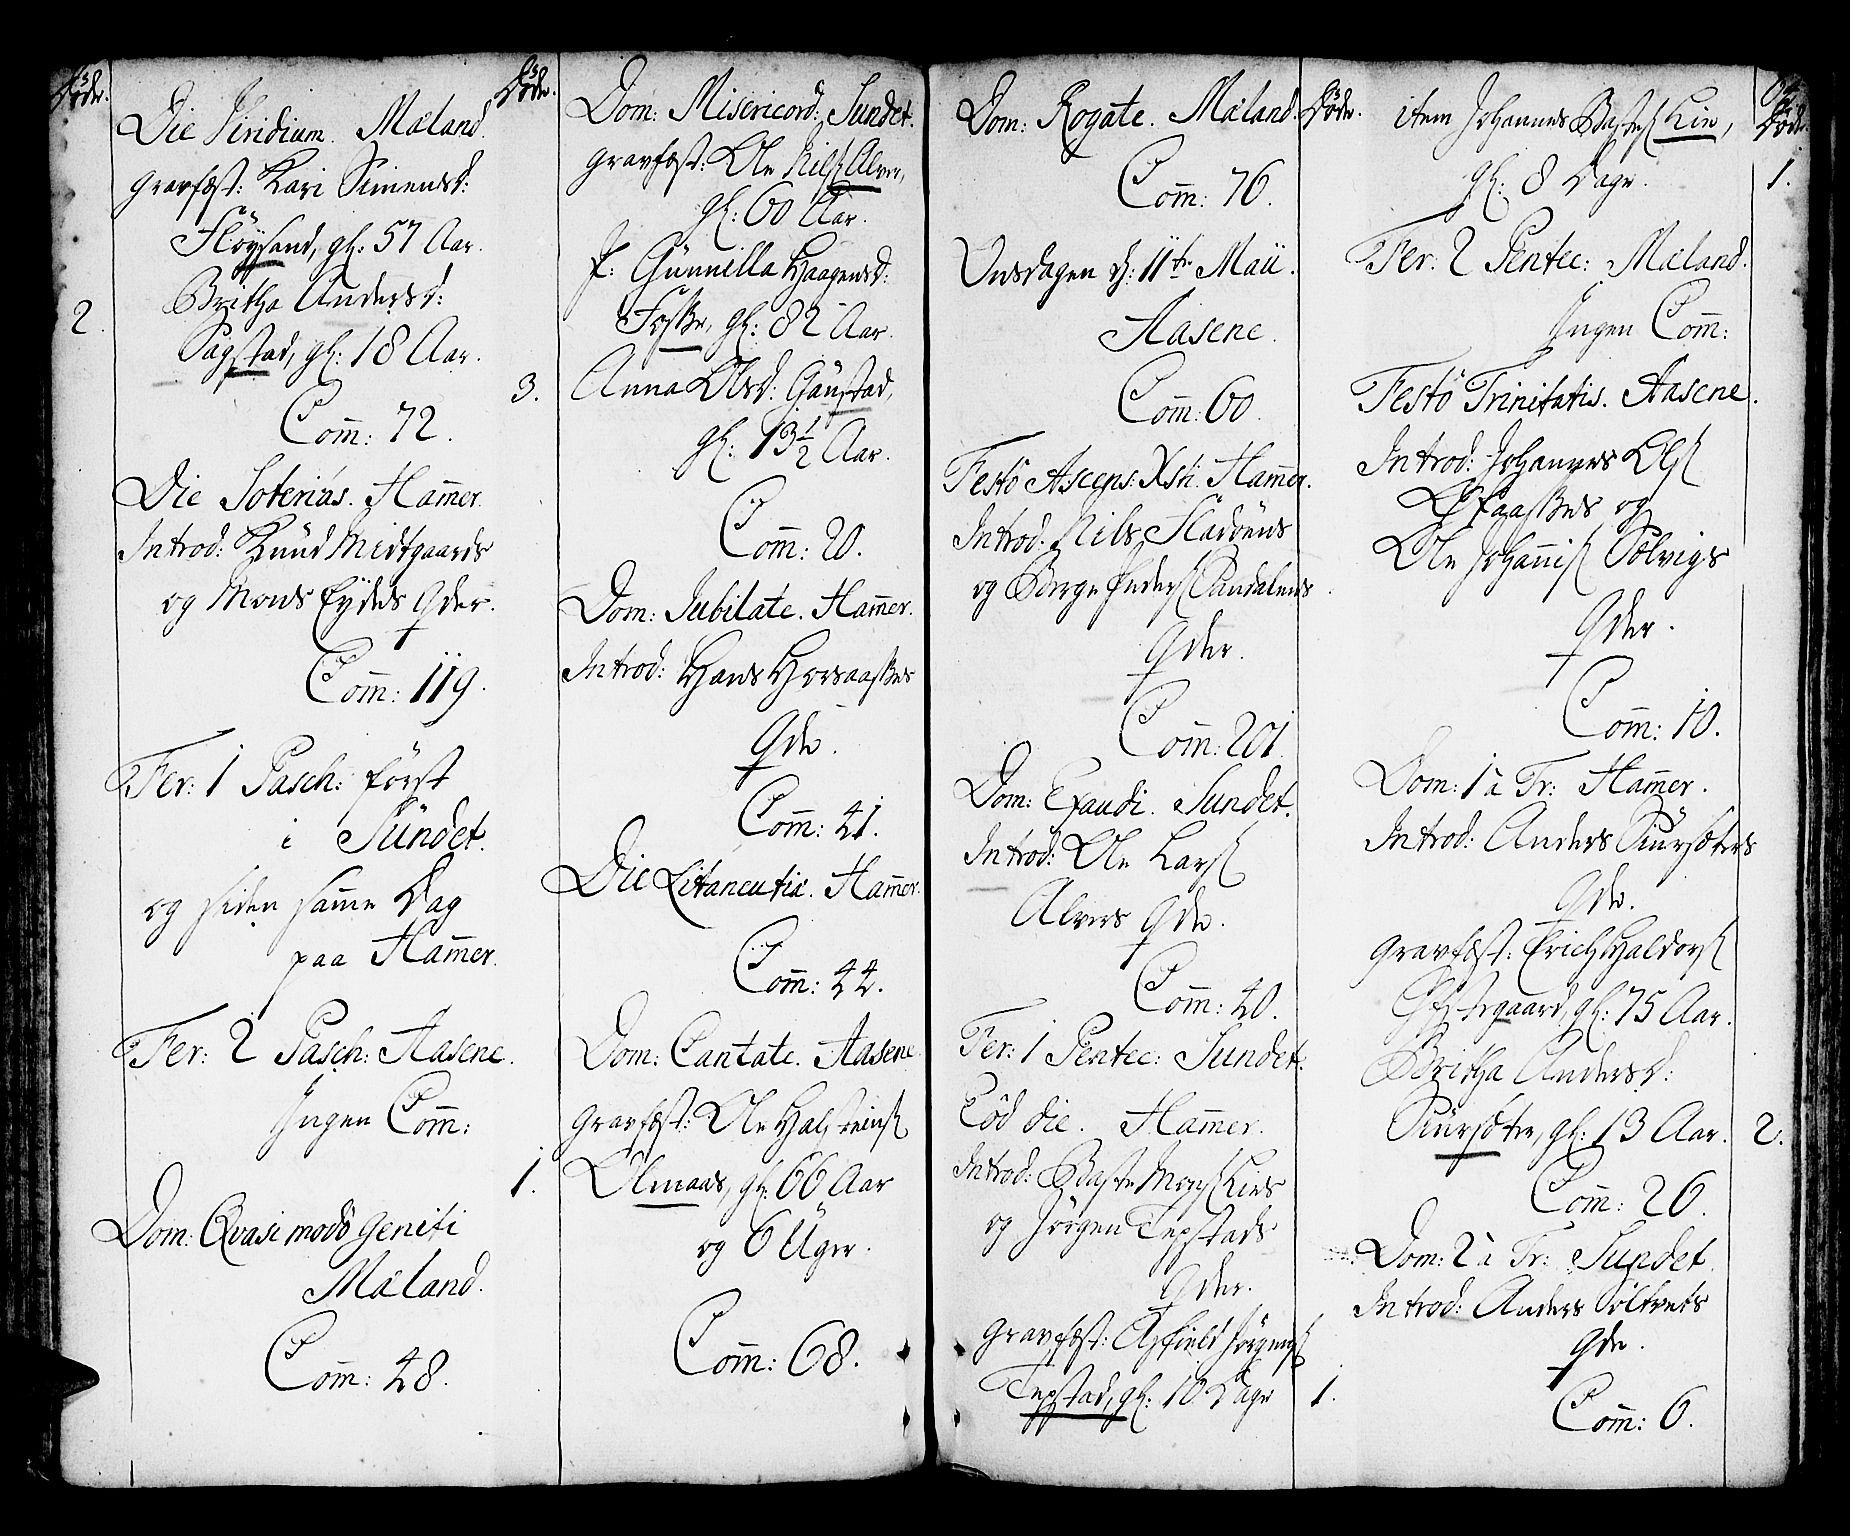 Døde.
Die Viridium. Mæland.
gravfæst: Kari Simensd:
Fløysand, gl: 57 Aar.
Britha Andersd:
2.
Sagstad, gl: 18 Aar.
Com̄: 72.
Die Soterias. Ham̄er.
Introd: Knüd Midtgaards
og Mons Eydes Qder.
Com̄: 119.
Fer: 1 Pasch: først
i Sündet.
og siden sam̄e Dag
paa Ham̄er.
Fer: 2 Pasch: Aasene.
Ingen Com̄:
Dom: Qvasimodo geniti
Mæland.
Com̄: 48.
Døde.
Dom: Misericord: Sundet.
gravfæst: Ole Nils: Alver,
gl: 60 Aar.
f: Günnilla Haagensd:
Foske, gl: 82 Aar.
3.
Anna Olsd: Gaustad,
gl: 13½ Aar.
Com̄: 20.
Dom: Jubilate. Ham̄er.
Introd: Hans Horsaasses
Qde.
Com̄: 41.
Die Litaneutiæ. Ham̄er.
Com̄: 44.
Dom: Cantate. Aasene
gravfæst: Ole Halsteins:
1.
Olmaas, gl: 66 Aar
og 6 Üger.
Com̄: 68.
Dom: Rogate. Mæland.
Com̄: 76.
Onsdagen d: 11te Maii.
Aasene.
Com̄: 60.
Festo Ascens: Xsti. Ham̄er.
Introd: Nils Fladøens
og Børge Peders: Sandalens
Qder.
Com̄: 201.
Dom: Exaudi. Sundet.
Introd: Ole Lars:
Alvers Qde.
Com̄: 40.
Fer: 1 Pentec: Sundet.
Eod die. Ham̄er.
Introd: Baste Mons: Lies
og Jørgen Tepstads
Qder.
gravfæst: Jørgens:
Tepstad, gl: 10 Dage
1.
Døde.
item Johannes Bastes: Lie,
gl: 8 Dage.
Døde.
1.
Fer: 2 Pentec: Mæland.
Ingen Com̄:
Festo Trinitatis. Aasene.
Introd: Johannes Ols:
og
Ole Johannis: Solvigs
Qder.
Com̄: 10.
Dom: 1 à Tr: Ham̄er.
Introd: Anders Kiursæters
Qde.
gravfæst: Erich Haldors:
gl: 75 Aar.
Britha Andersd:
Kiursæter, gl: 13 Aar.
2.
Com̄: 26.
Dom: 2 à Tr: Sundet.
Introd: Anders Soltvets
Qde.
Com̄: 6.